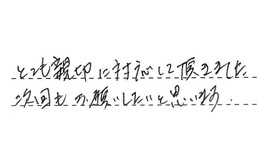 とても親切に対応して頂きました
次回もお願いしたいと思います.